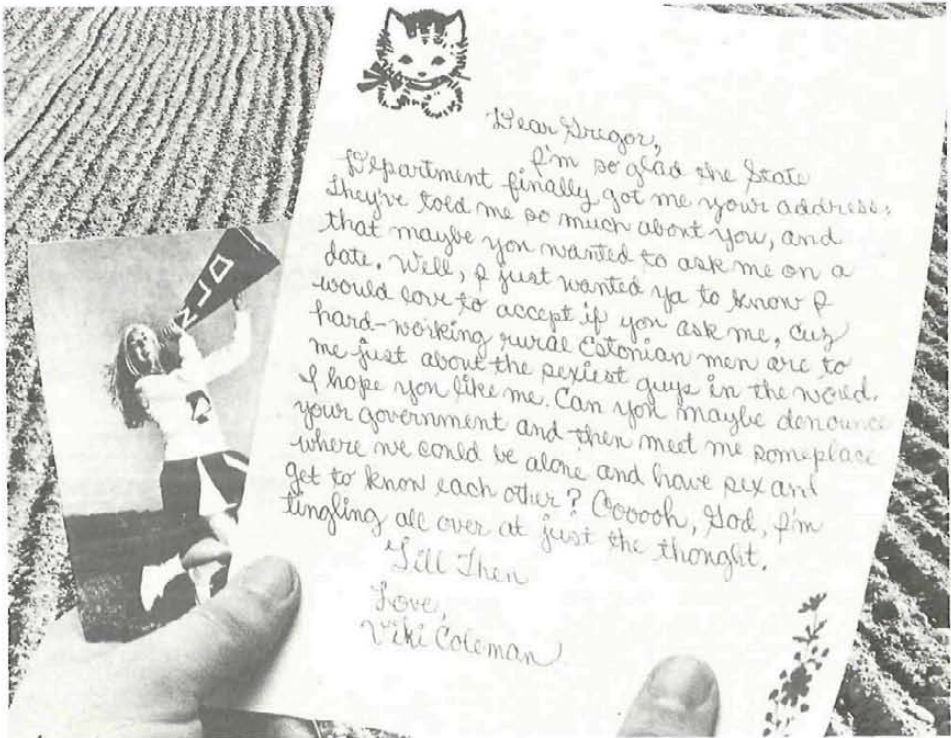 Dear Gregor,
I'm so glad the State
Department finally got me your address.
They've told me so much about you, and
that maybe you wanted to ask me on a
date. Well, I just wanted ya to know I
would love to accept if you ask me, cuz
hard-working rural Estonian men are to
me just about the sexiest guys in the world.
I hope you like me. Can you maybe denounce
your government and then meet me someplace
where we could be alone and have sex and
get to know each other? Oooooh, God, I'm
tingling all over at just the thought.
'Till Then
Love,
Viki Coleman